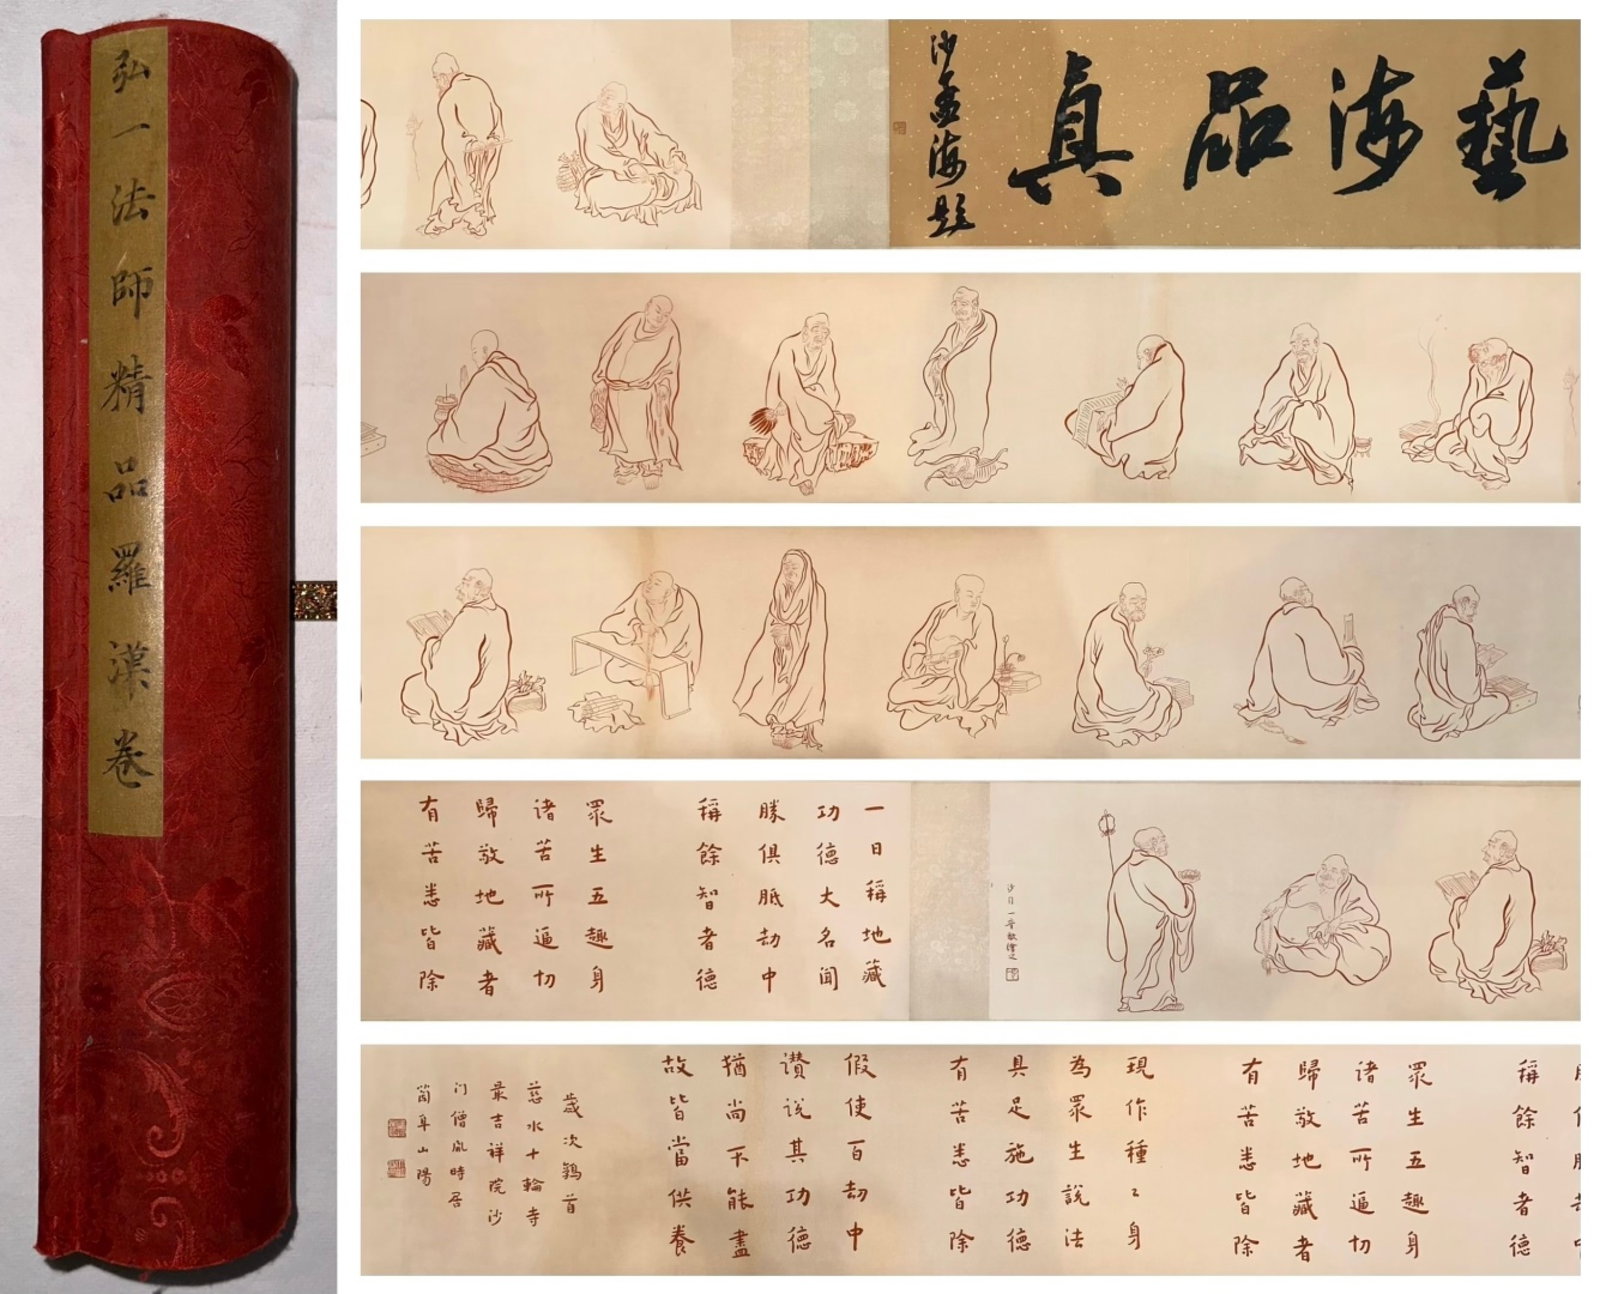 弘一法師精品羅漢卷
藝海品真
沙孟海题
沙门一音敬繪之
一日稱地藏
功德大名聞
勝俱胝劫中
稱餘智者德
眾生五趣身
诸苦所逼切
歸敬地藏者
有苦悉皆除
稱餘智者德
眾生五趣身
诸苦所逼切
歸敬地藏者
有苦悉皆除
現作種々身
為眾生說法
具足施功德
有苦悉皆除
假使百劫中
讃說其功德
猶尚不能盡
故皆當供養
歲次鶉首
慈水十輪寺
最吉祥院沙
门僧胤時居
山陽